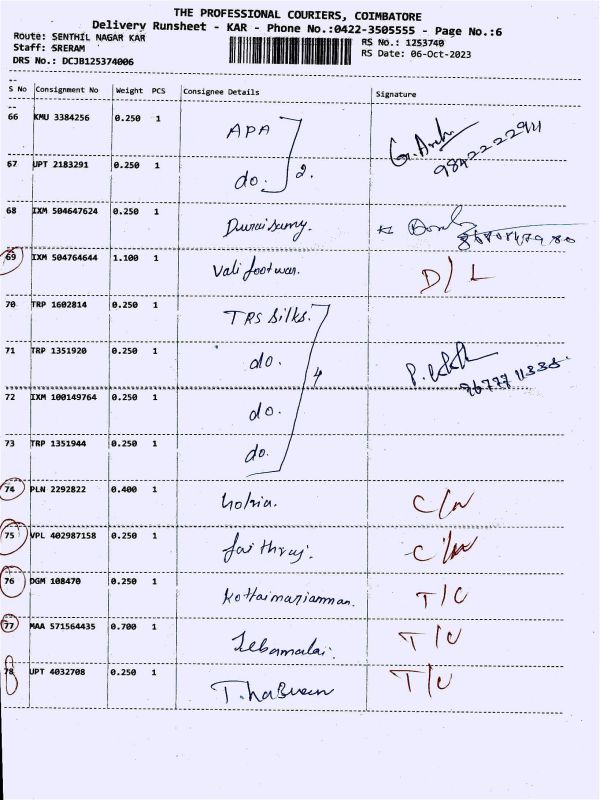 THE PROFESSIONAL COURIERS, COIMBATORE
Delivery Runsheet - KAR - Phone No.:0422-3505555 - Page No.:6
Route: SENTHIL NAGAR KAR
RS No.: 1253740
Staff: SRERAM
RS Date: 06-Oct-2023
DRS No.: DCJB125374006
S No Consignment No Weight PCS Consignee Details Signature
66 KMU 3384256 0.250 1 APA
67 UPT 2183291 0.250 1 do. 2. 9842222911
68 IXM 504647624 0.250 1 Duraisamy.
69 IXM 504764644 1.100 1 Vali footwar. D/L
70 TRP 1602814 0.250 1 TRS Silks.
71 TRP 1351920 0.250 1 do. 4
72 IXM 100149764 0.250 1 do.
73 TRP 1351944 0.250 1 do.
74 PLN 2292822 0.400 1
75 VPL 402987158 0.250 1
76 DGM 108470 0.250 1 Kottaimariamman. T/C
77 MAA 571564435 0.700 1 Jebamalai. T/C
78 UPT 4032708 0.250 1 T/C